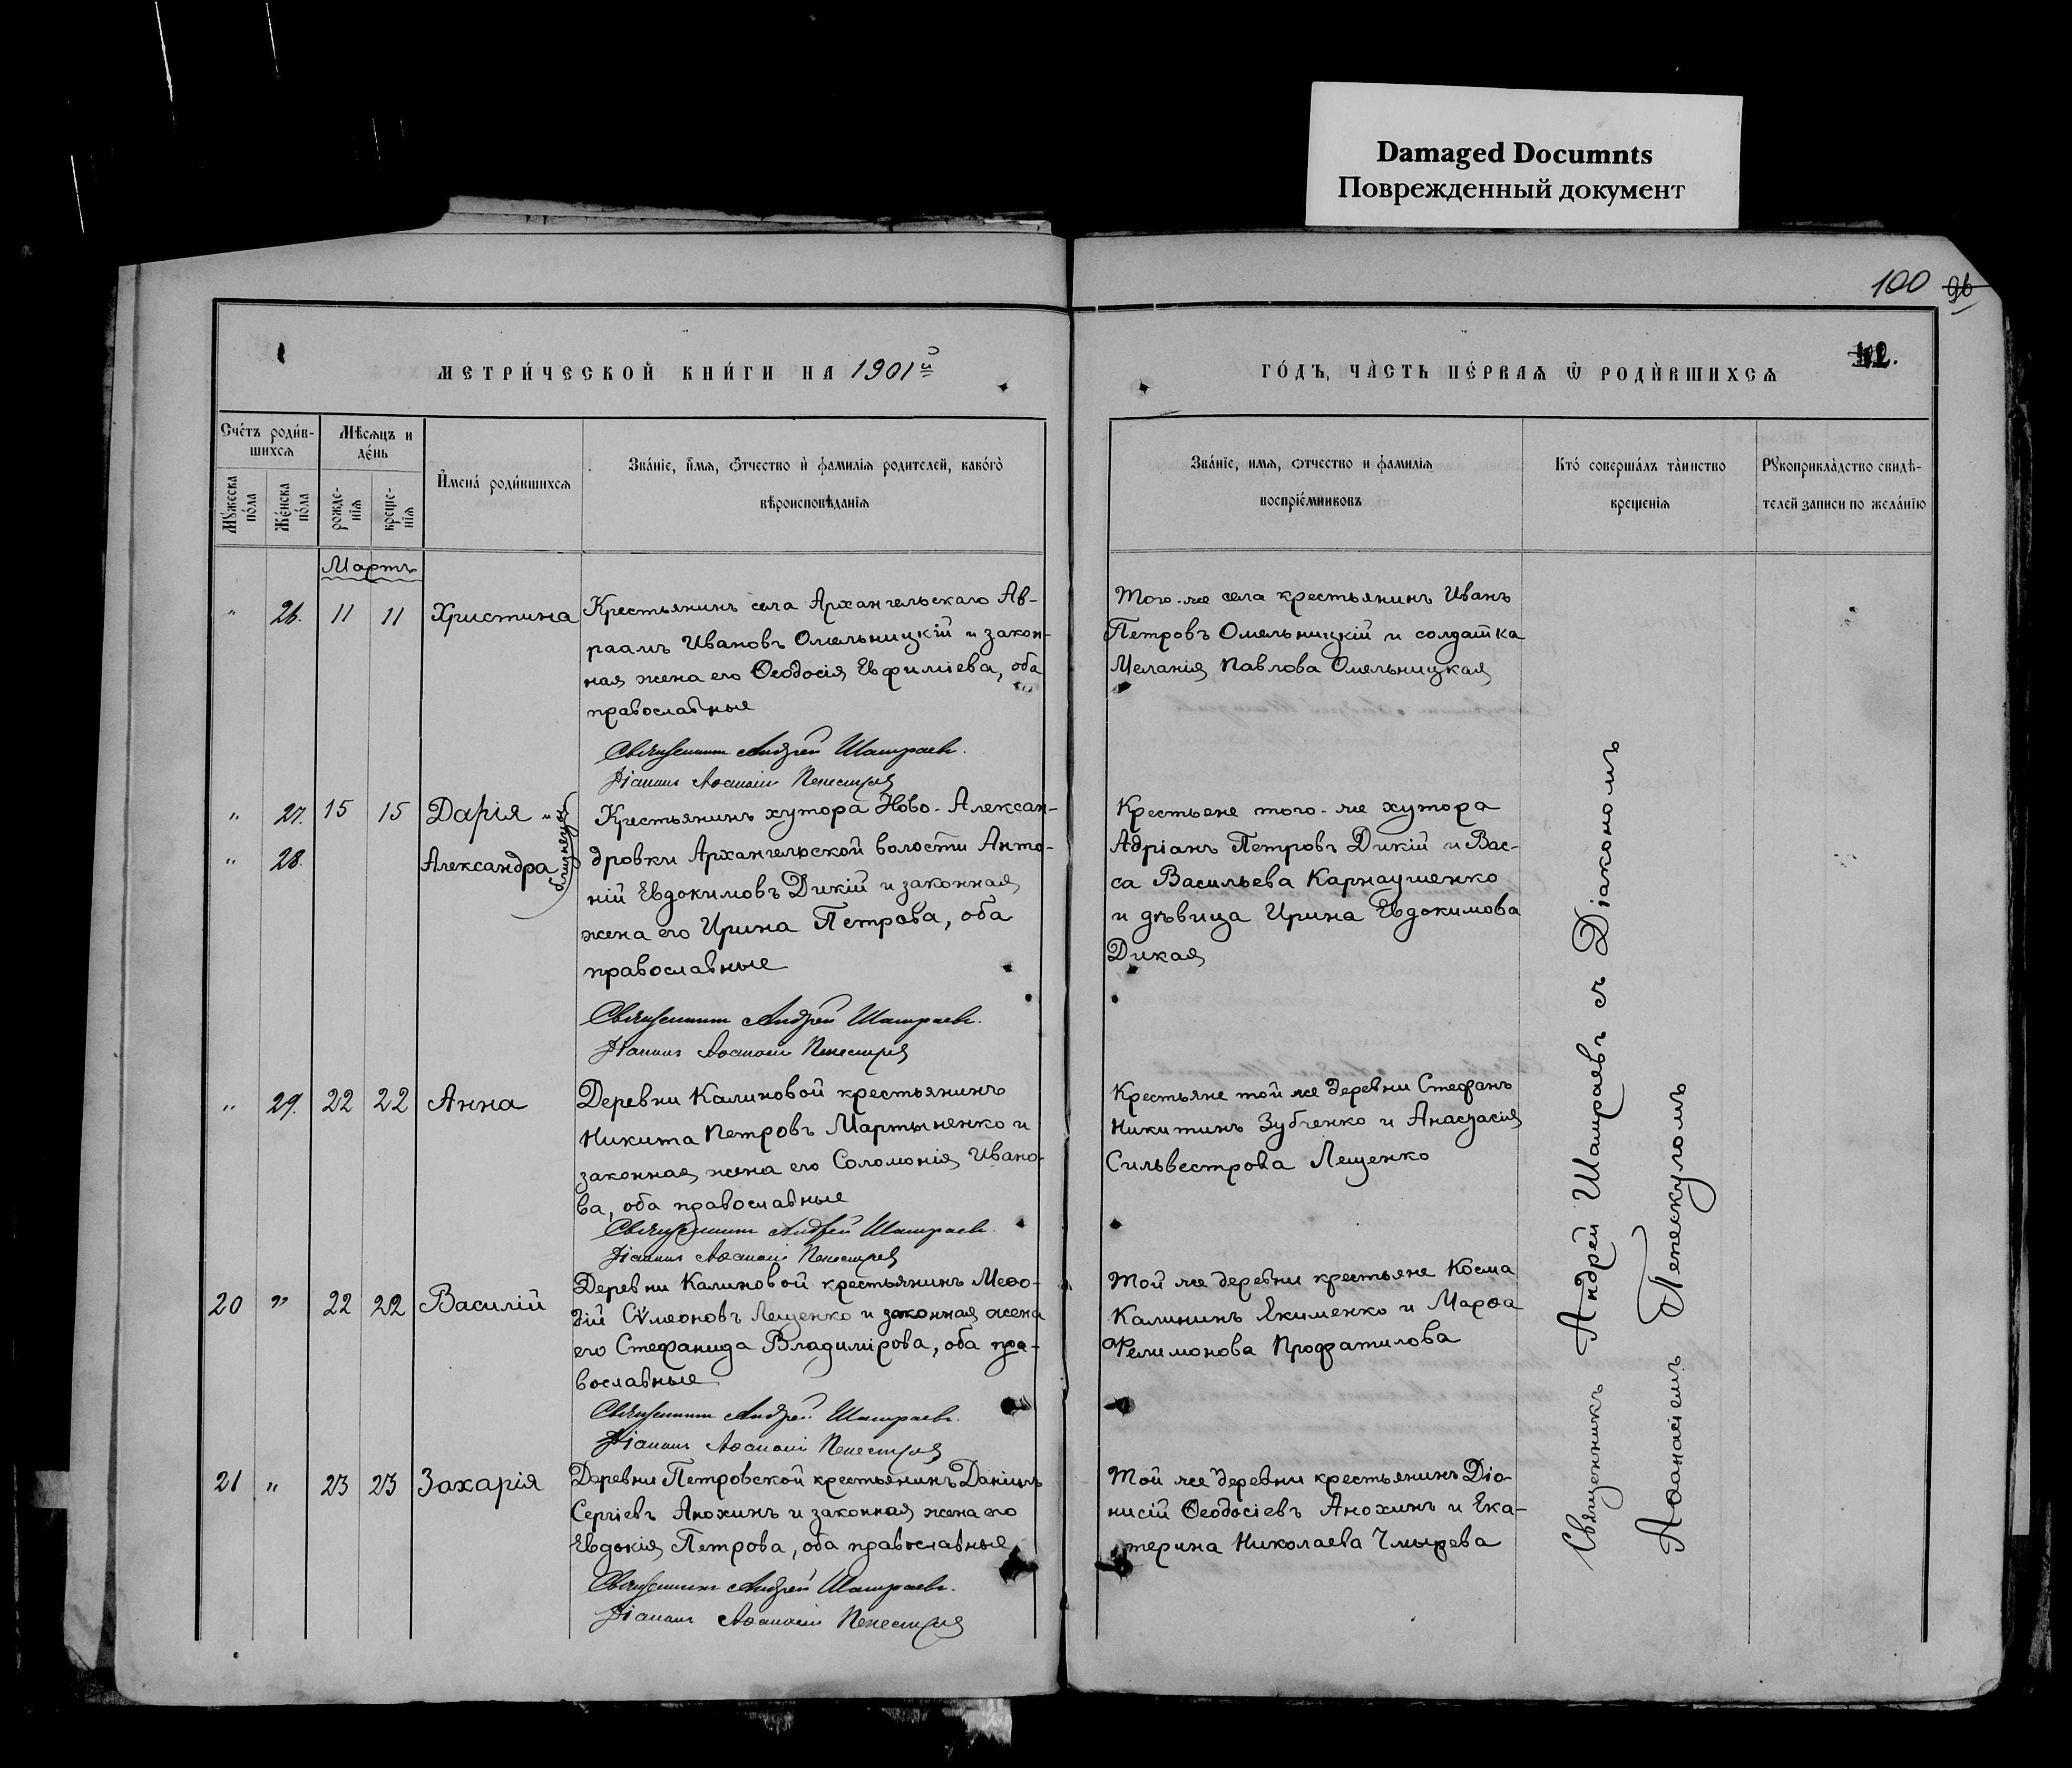 Damaged Documnts
Поврежденный документ
100 96
МЕТРИ́ЧЕСКОЙ КНИ́ГИ НА 1901й
ГО́ДЪ, ЧА̀СТЬ ПЕ́РВАѦ Ѿ РОДЍВШИХСѦ
42.
Сче́тъ роди́в-
шихсѧ
Мѣ́сѧцъ и
де́нь
Мꙋ́жеска
по́ла
Же́нска
по́ла
рожде-
нїѧ
креще-
нїѧ
И҆мена̀ роди́вшихсѧ
Зва́нїе, и҆́мѧ, ѻ҆́тчество и҆ фами́лїѧ роди́телей, како́гѡ
вѣроисповѣ́данїѧ
Зва́нїе, имѧ, ѻтчество и фами́лїѧ
воспрїе́мниковъ
Кто́ соверша́лъ та̀инство
креще́нїѧ
Рꙋкоприкла̀дство свидѣ́-
телей записи по жела́нїю
Мартъ
" 26. 11 11 Христина
Крестьянинъ села Архангельскаго Ав-
раамъ Ивановъ Омельницкій и закон-
ная жена его Ѳеодосія Евфиміева, оба
православные
Священникъ Андрей Шамраевъ.
Діаконъ Аѳанасій Пенескулъ
Того-же села крестьянинъ Иванъ
Петровъ Омельницкій и солдатка
Меланія Павлова Омельницкая
" 27. 15 15 Дарія и
" 28. Александра
близнецы
Крестьянинъ хутора Ново-Алексан-
дровки Архангельской волости Анто-
ній Евдокимовъ Дикій и законная
жена его Ирина Петрова, оба
православные
Священникъ Андрей Шамраевъ.
Діаконъ Аѳанасій Пенескулъ
Крестьене того-же хутора
Адріанъ Петровъ Дикій и Вас-
са Васильева Карнаушенко
и дѣвица Ирина Евдокимова
Дикая
" 29. 22 22 Анна
Деревни Калиновой крестьянинъ
Никита Петровъ Мартыненко и
законная жена его Соломонія Ивано-
ва, оба православные
Священникъ Андрей Шамраевъ.
Діаконъ Аѳанасій Пенескулъ
Крестьяне той же деревни Стефанъ
Никитинъ Зубченко и Анастасія
Сильвестрова Лещенко
20 " 22 22 Василій
Деревни Калиновой крестьянинъ Меѳо-
дій Сѵмеоновъ Лещенко и законная жена
его Стефанида Владимірова, оба пра-
вославные
Священникъ Андрей Шамраевъ.
Діаконъ Аѳанасій Пенескулъ
Той же деревни крестьяне Косма
Калининъ Якименко и Марѳа
Филимонова Профатилова
21 " 23 23 Захарія
Деревни Петровской крестьянинъ Даніилъ
Сергіевъ Анохинъ и законная жена его
Евдокія Петрова, оба православные
Священникъ Андрей Шамраевъ.
Діаконъ Аѳанасій Пенескулъ
Той же деревни крестьянинъ Діо-
нисій Ѳеодосіевъ Анохинъ и Ека-
терина Николаева Чмырева
Священникъ Андрей Шамраевъ съ Діакономъ
Аѳанасіемъ Пенескуломъ